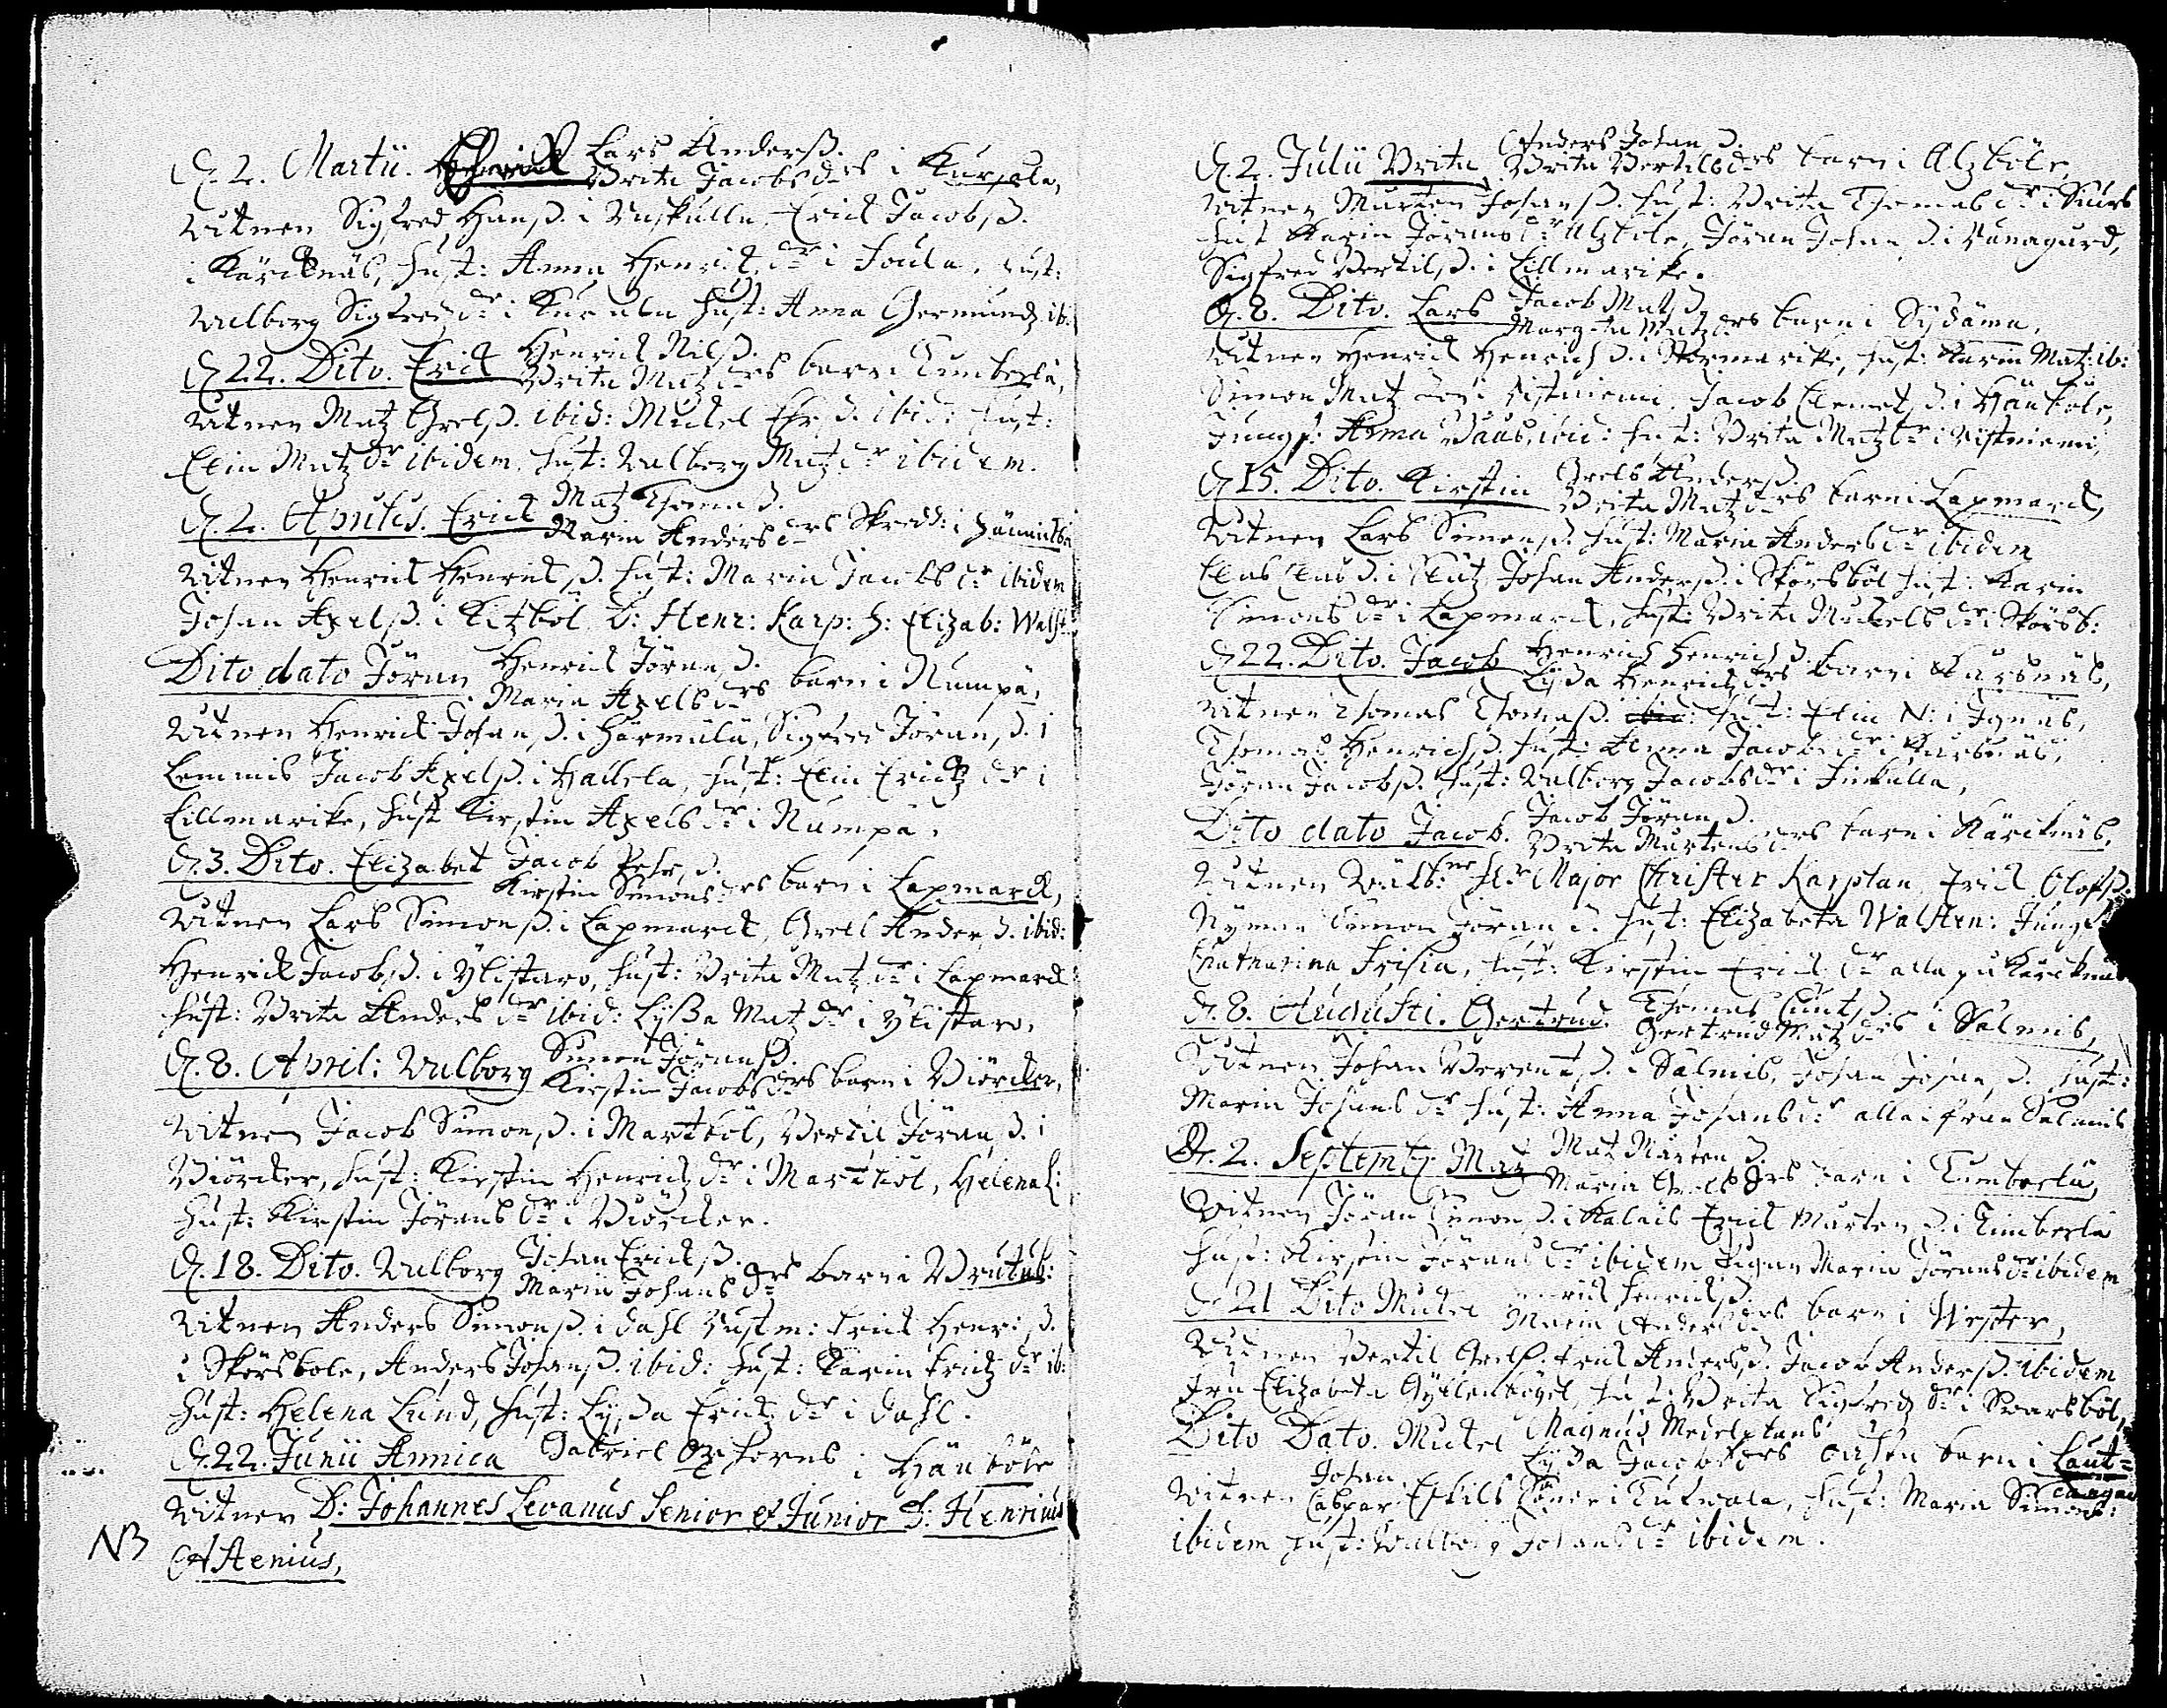 D. 2. Martii. Henrich Lars Anderß.
Brita Jacobsdrs i Kurjala,
Vitnen Sigfred Hanß. i Vaskulla, Erick Jacobß.
i Kärcknäs, hust: Anna Henrichdr i Joula, hust:
Valborg Sigfredzdr i hust: Anna Germundz ib:
D. 22. Dito. Erick Henrich Nilß.
Brita Matzdrs barn i Timberla,
Vitnen Matz Grelß. ibid: Mickel ibid: hust:
Elin Matzdr ibidem, hust: Valborg Matzdr ibidem.
D. 2. Aprilis. Erick Matz Thomaß.
Karin Andersdrs Skredd: i
Vitnen Henrich Henrichß. hust: Maria Jacobsdr ibidem
Johan Axelß. i Kitzböl D: Henr: Karp: h: Elizab: Walst:
Dito dato Jöran Henrich Jöranß.
Maria Axelsdrs barn i Rumpä,
Vitnen Henrich Johanß. i Härmälä, Sigfred Jöranß. i
Lemmis Jacob Axelß. i Hallela, hust: Elin Erichzdr i
Lillmarike, hust Kirstin Axelsdr i Rumpä.
D. 3. Dito. Elizabet Jacob Pehrß.
Kirstin Simonsdrs barn i Lapmarck,
Vitnen Lars Simonß. i Lapmarck, Grell Anderß. ibid:
Henrich Jacobß. i Ylistaro, hust: Brita Matzdr i Lapmarck
hust: Brita Andersdr ibid: Lyßa Matzdr i Ylistaro.
D. 8. April: Valborg Simon Jöranß.
Kirstin Jacobsdrs barn i Biörcker,
Vitnen Jacob Simonß. i Marttböl, Bertil Jöranß. i
Biörcker, hust: Kirstin Henrichzdr i Marttböl, Helena L:
hust: Kirstin Jöransdr i Biörcker.
D. 18. Dito. Valborg Johan Erichß.
Maria Johansdrs barn i
Vitnen Anders Simonß. i Dahl Rustm: Erick Henr:ß.
i Skörsbole, Anders Johanß. ibid: hust: Karin Erichzdr ib:
hust: Helena Lund, hust: Lyßa Erichzdr i Dahl.
D. 22. Junii Annica Gabriel i Hänböle
Vitnen D: Johannes Levanus Senior et Junior D: Henricus
NB Astenius,
D. 2. Julii Brita Anders Johanß.
Brita Bertilsdrs barn i Alzböle,
Vitnen Mårten Johanß. hust: Brita Thomasdr i
hust Karin Jöransdr Alzböle, Jöran Johanß. i Vånagård,
Sigfred Bertilß. i Lillmarike.
D. 8. Dito. Lars Jacob Matzß.
Marg-ta Matzdrs barn i Sydåma,
Vitnen Henrich Henrichß. i Stormarike, hust: Karin Matz: ib:
Simon Matzson i Ristniemi, Jacob Clemetß. i Hänböle,
Jungf: Anna Claus. ibid: hust: Brita Matzdr i Ristniemi,
D. 15. Dito. Kirstin Grels Anderß.
Brita Matzdrs barn i Lapmarck,
Vitnen Lars Simonß. hust: Maria Andersdr ibidem
Clas Clasß. i Johan Anderß. i Skörsböl hust: Karin
Simonsdr i Lapmarck, hust: Brita Mickelsdr i Skörsb:
D. 22. Dito. Jacob Henrich Henrichß.
Lyßa Henrichzdrs barn i Kursnäs,
Vitnen Thomas Thomaß. ibid: hust: Elin N: i
Thomas Henrichß. hust: Anna Jacobsdr i Kursnäs,
Jöran Jacobß. hust: Valborg Jacobsdr i Finkulla,
Dito dato Jacob. Jacob Jöranß.
Brita Mårtensdrs barn i Kärcknäs,
Vitnen Wälb:ne Hr Major Christer Karplan, Erick Olofß.
Nyman Simon Jöranß. hust: Elizabeta Walsten: Jungf
Chatharina Frisia, hust: Kirstin Erichsdr alla på Kärcknäs
D. 8. Augusti. Gertrud. Thomas Cnutß.
Gertrud Matzdrs i Salmis,
Vitnen Johan Berentß. i Salmis, Johan Johanß. hust:
Maria Johansdr hust: Anna Johansdr alla ifrån Salmis
D. 2. Septemb: Matz Matz Mårtenß.
Maria Grelsdrs barn i Timberla,
Vitnen Jöran Simonß. i Kalais Erick Mårtenß. i Timberla
hust: Kirstin Jöransdr ibidem Pigan Maria Jöransdr ibidem
D. 21 Dito Mickel Henrich Henrichß.
Maria Andersdrs barn i Wester,
Vitnen Bertil Grelß. Erick Anderß. Jacob Anderß. ibidem
fru Elizabeta Gyllenbögel, hust: Brita Sigfredzdr i Svarsböl,
Dito Dato. Mickel Magnus Medelplans
Lyßa Jacobsdrs barn i Laut=
Vitnen Johan Caspar Eskils söner i Tutvala, hust: Maria Simons:
ibidem hust: Valborg Johansdr ibidem.